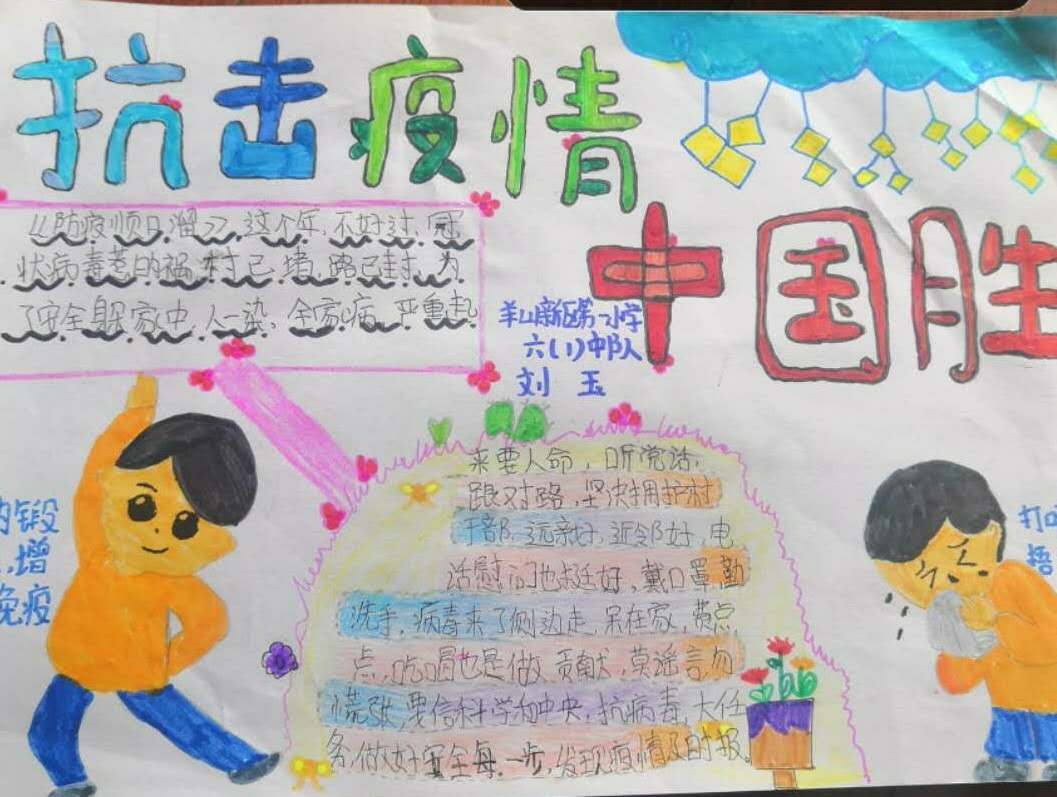 抗击疫情
中国胜
《防疫顺口溜》，这个年，不好过，冠
状病毒惹的祸，村已堵，路已封，为
了安全躲家中，人一染，全家病，严重起
羊山新区第一小学
六(1)中队
刘玉
来要人命，听党话，
跟对路，坚决拥护村
干部，远亲好，近邻好，电
话慰问也挺好，戴口罩勤
洗手，病毒来了侧边走，呆在家，费点
点，吃喝也是做贡献，莫谣言，勿
慌张，要信科学和中央，抗病毒，大任
务，做好安全每一步，发现疫情及时报。
的锻
，增
免疫
打
捂